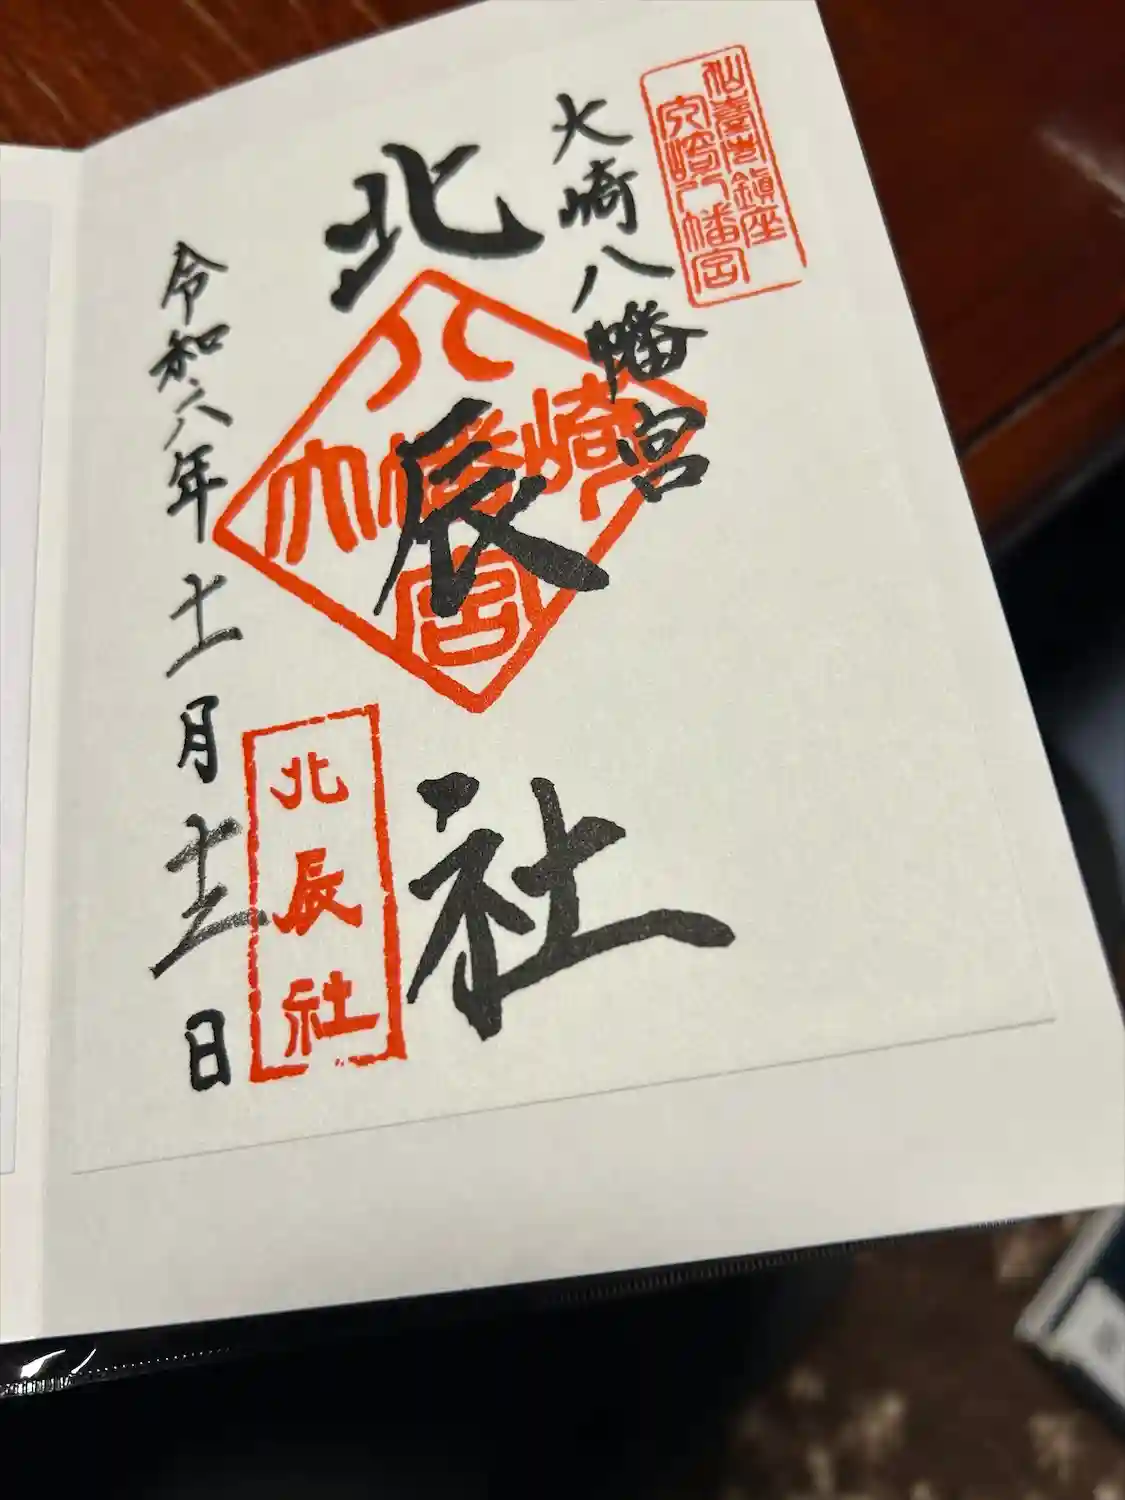 仙臺市鎮座
大崎八幡宮
大崎八幡宮
北辰社
大崎八幡宮
北辰社
令和六年十一月十二日